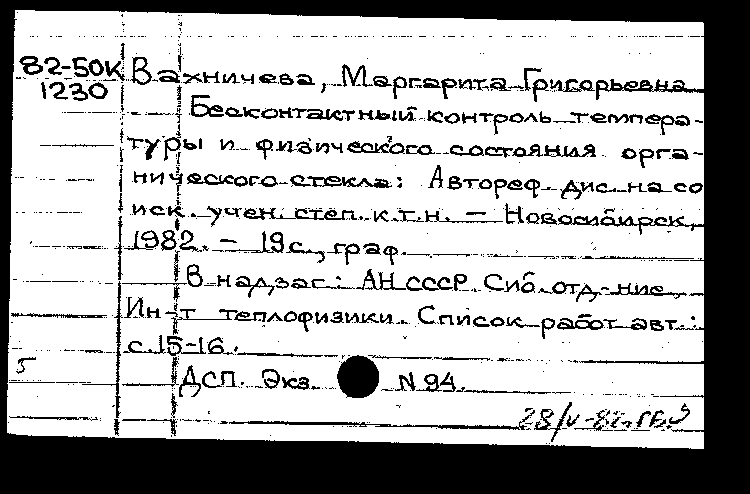 82-50К
1230
Вахничева, Маргарита Григорьевна
Бесконтактный контроль темпера-
туры и физического состояния орга-
нического стекла: Автореф. дис. на со
иск. учен. степ. к.т.н. — Новосибирск,
1982. — 19 с., граф.
В надзаг: АН СССР. Сиб. отд-ние,
Ин-т теплофизики. Список работ авт.:
с. 15-16.
5
ДСП. Экз. N 94.
28/V-82.